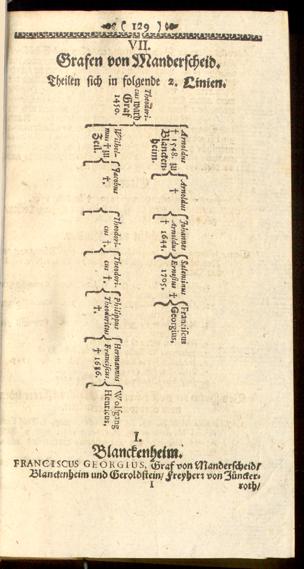 ( 129 )
VII.
Grafen von Manderscheid.
Theilen sich in folgende 2. Linien.
Theodori-
cus ward
Graf
1450.
Arnoldus
† 1548. zu
Blancken-
heim.
Arnoldus
†
Johannes
Arnoldus
† 1644.
Salentinus
Ernestus †
1705.
Franciscus
Georgius,
Wilhel-
mus † zu
Zeil.
Jacobus
†.
Theodori-
cus †.
Theodori-
cus †.
Philippus
Theodoricus
†.
Hermannus
Franciscus
† 1686.
Wolfgang
Henricus,
I.
Blanckenheim.
FRANCISCUS GEORGIUS, Graf von Manderscheid/
Blanckenheim und Geroldstein/ Freyherr von Jüncke-
I
roth/